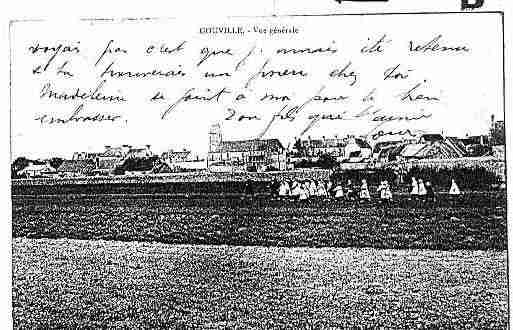 GOUVILLE. - Vue générale
voyais pas c'est que j'aurais été retenu
si tu trouverais un pneu chez toi
Madeleine se joint à moi pour te bien
embrasser. Ton fils qui t'aime